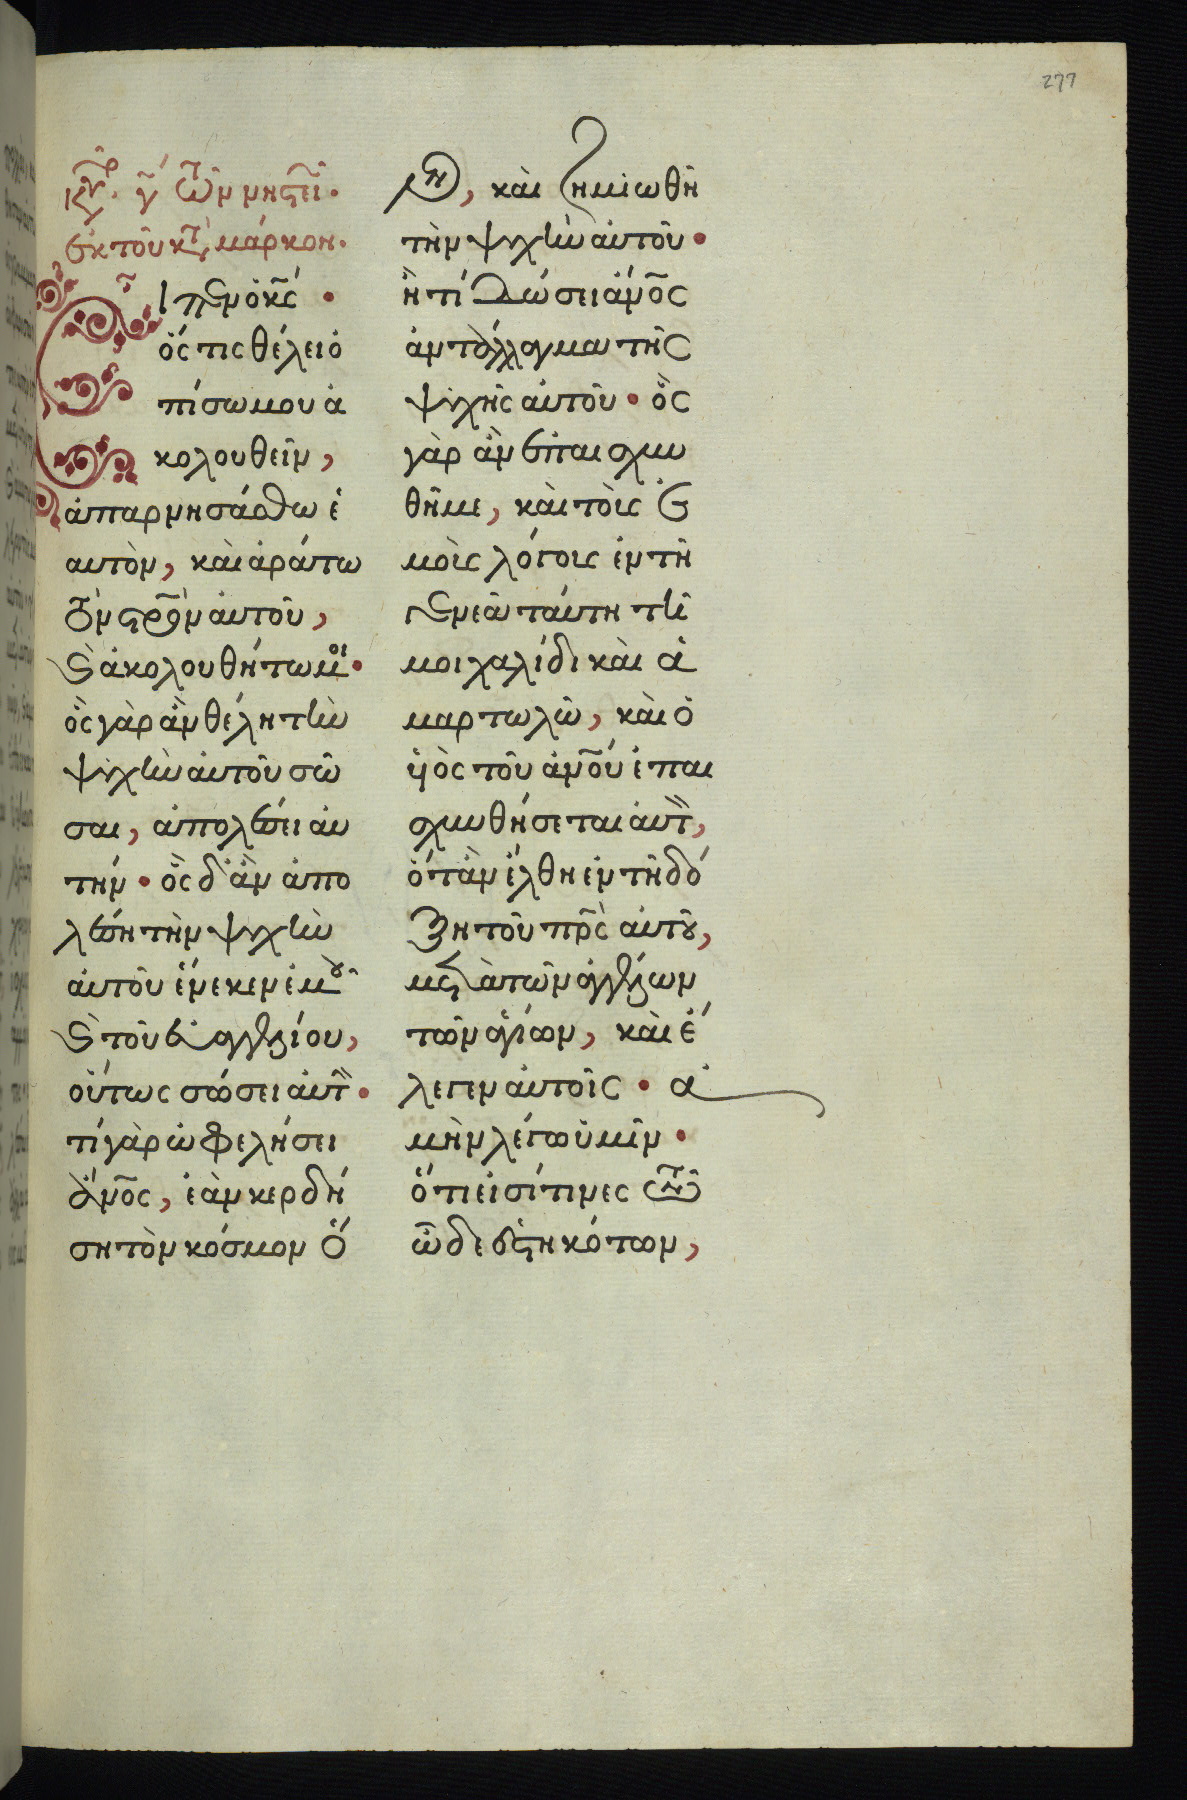 277
κυρ. γ τῶν νηστει.
ἐκ τοῦ κτ μάρκον.
Εἶπεν ὁ κς •
ὅστις θέλει ὀ
πίσω μου ἀ
κολουθεῖν,
ἀπαρνησάσθω ἑ
αυτὸν, καὶ ἀράτω
τὸν στρον αὐτοῦ,
ϗ ἀκολουθήτω μοι •
ὃς γὰρ ἂν θέλη τὴν
ψυχὴν αὐτοῦ σῶ
σαι, ἀπολέσει αὐ
τήν • ὃς δ' ἂν ἀπο
λέσῃ τὴν ψυχὴν
αὐτοῦ ἕνεκεν ἐμοῦ
ϗ τοῦ εὐαγγελίου,
οὗτως σώσει αὐτ •
τί γὰρ ὠφελήσει
ἄνος, ἐὰν κερδή
ση τὸν κόσμον ὅ
λον, καὶ ζημιωθῆ
τὴν ψυχὴν αὐτοῦ •
ἢ τί δώσει ἄνος
ἀντάλλαγμα τῆς
ψυχῆς αὐτοῦ • ὃς
γὰρ ἂν ἐπαισχυν
θῆ με, καὶ τοὺς ἐ
μοὺς λόγους ἐν τῆ
γενεᾶ ταύτη τῆ
μοιχαλίδι καὶ ἁ
μαρτωλῶ, καὶ ὁ
υἱὸς τοῦ ἀνου ἐπαι
σχυνθήσεται αὐτ,
ὅταν ἔλθη ἐν τῆ δό
ξη τοῦ πρς αὐτοῦ,
μετὰ τῶν ἀγγέλων
τῶν ἁγίων, καὶ ἔ
λεγεν αὐτοῖς • ἀ
μὴν λέγω ὑμῖν •
ὅτι εἰσί τινες τῶν
ὧδε ἑστηκότων,